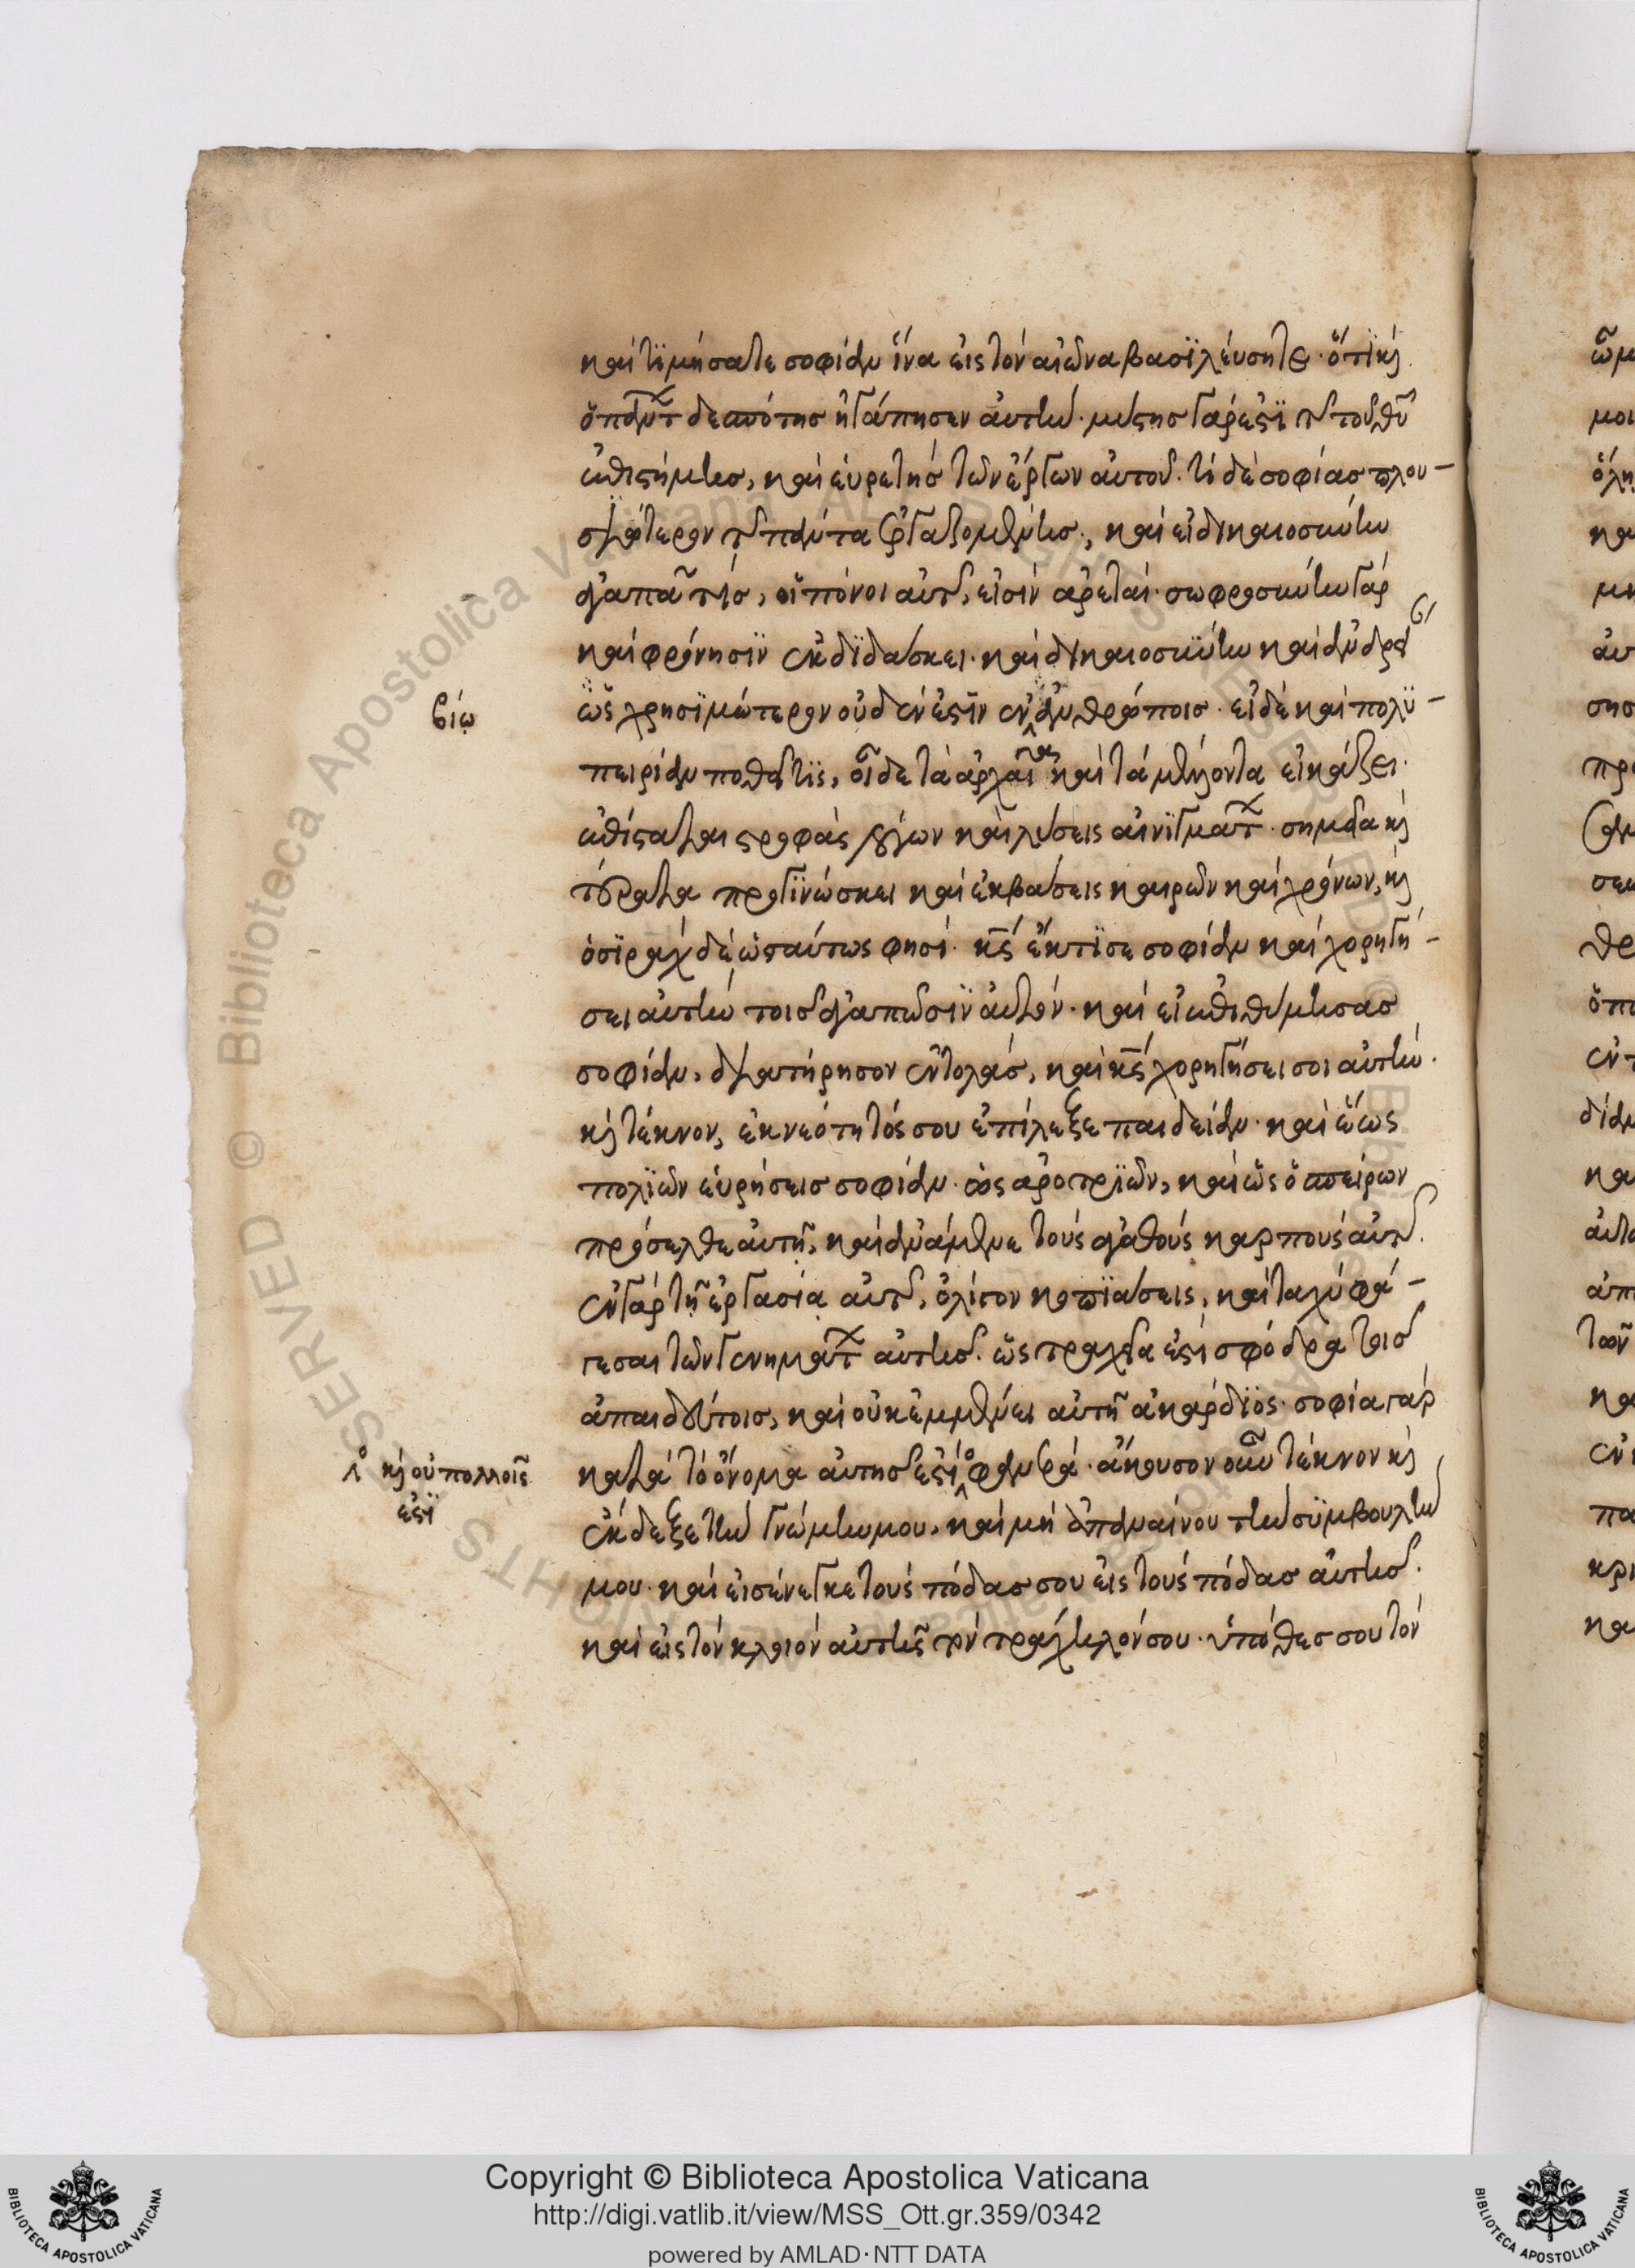 καὶ τϊμήσατε σοφίαν ἵνα εἰς τὸν αἰῶνα βασϊλεύσητε· ὅτϊ κ(αὶ)
ὁ πάντ(ων) δεσπότης ἠγάπησεν αὐτήν· μύστης γάρ ἐστϊ τῆς τοῦ θ(εο)ῦ
ἐπιστήμης, καὶ εὑρετὴς τῶν ἔργων αὐτοῦ. τί δὲ σοφίας πλου-
σιώτερον τῆς πάντα ἐργαζομένης, καὶ εἰ δικαιοσύνην
ἀγαπᾶ τίς, οἱ πόνοι αὐτῆς εἰσὶν ἀρεταί· σωφροσύνην γάρ
καὶ φρόνησϊν ἐκδϊδάσκει· καὶ δικαιοσύνην καὶ ἀνδρεί
βίῳ
ὧς χρησϊμώτερον οὐδέν ἐστϊν ἐν ἀνθρώποις· εἰ δὲ καὶ πολϋ-
πειρίαν ποθεῖ τϊς, οἶδε τὰ ἀρχαῖα καὶ τὰ μέλλοντα εἰκάζει·
ἐπίσταται στροφὰς λόγων καὶ λύσεις αἰνϊγμάτ(ων)· σημεῖα κ(αὶ)
τέρατα προγϊνώσκει καὶ ἐκβάσεις καιρῶν καὶ χρόνων, κ(αὶ)
ὁ σϊράχ δὲ ὡσαύτως φησί· κ(ύριο)ς ἔκτϊσε σοφίαν καὶ χορηγή-
σει αὐτήν τοῖς ἀγαπῶσϊν αὐτόν· καὶ εἰ ἐπιθύμησας
σοφίαν, διατήρησον ἐντολάς, καὶ κ(ύριο)ς χορηγήσει σοι αὐτήν.
κ(αὶ) τέκνον, ἐκ νεότητός σου ἐπίλεξε παιδείαν· καὶ ἕως
πολϊῶν εὑρήσεις σοφίαν· ὡς ἀροτρϊῶν, καὶ ὡς ὁ σπείρων
πρόσελθε αὐτῇ, καὶ ἀνάμενε τοὺς ἀγαθοὺς καρποὺς αὐτῆς.
ἐν γὰρ τῇ ἐργασίᾳ αὐτῆς, ὀλίγον κοπϊάσεις, καὶ ταχύ φά-
γεσαι τῶν γεννημάτ(ων) αὐτῆς. ὡς τραχεῖα ἐστὶ σφόδρα τοῖς
ἀπαιδεύτοις, καὶ οὐκ ἐμμένει αὐτῇ ἀκάρδϊος· σοφία γὰρ
κατὰ τὸ ὄνομα αὐτῆς ἐστὶ φανερά· ἄκουσον οὖν τέκνον κ(αὶ)
κ(αὶ) οὐ πολλοῖς
ἐστϊ
ἔκδεξε τὴν γνώμην μου, καὶ μὴ ἀπαναίνου τὴν σϋμβουλήν
μου· καὶ εἰσένεγκε τοὺς πόδας σου εἰς τοὺς πόδας αὐτῆς.
καὶ εἰς τὸν κλοιὸν αὐτῆς τὸν τράχηλόν σου· ὑπόθες σου τὸν
Copyright © Biblioteca Apostolica Vaticana
http://digi.vatlib.it/view/MSS_Ott.gr.359/0342
powered by AMLAD·NTT DATA